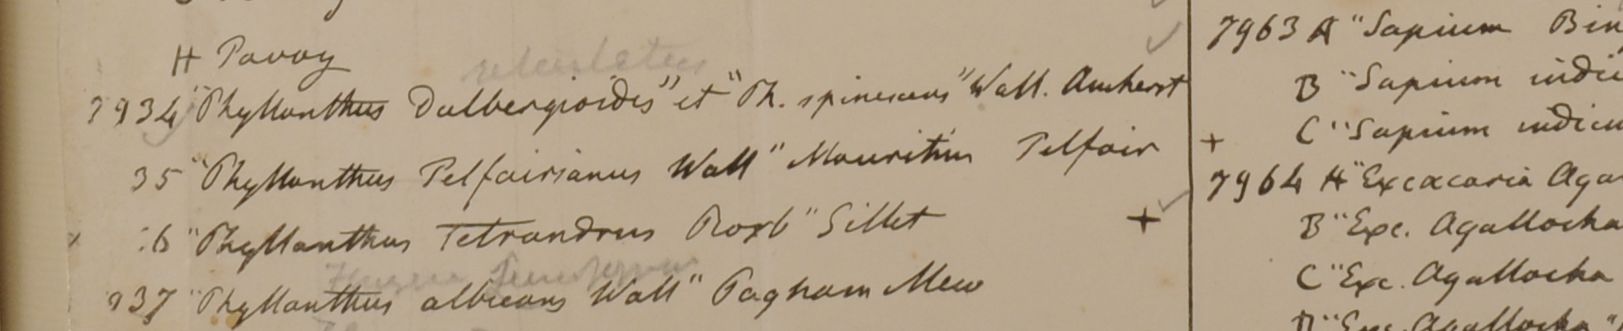 H Tavoy
7934 "Phyllanthus Dalbergioides" et "Ph. spinescens" Wall. Amherst
35 "Phyllanthus Telfairianus Wall" Mauritius Telfair
36 "Phyllanthus Tetrandrus Roxb" Sillet +
937 "Phyllanthus albicans Wall" Pagham Mew
7963 A "Sapium
B "Sapium
+ C "Sapium
7964 A "Excæcaria
B "Exc. Agallocha
C "Exc. Agallocha
D "Exc. Agallocha